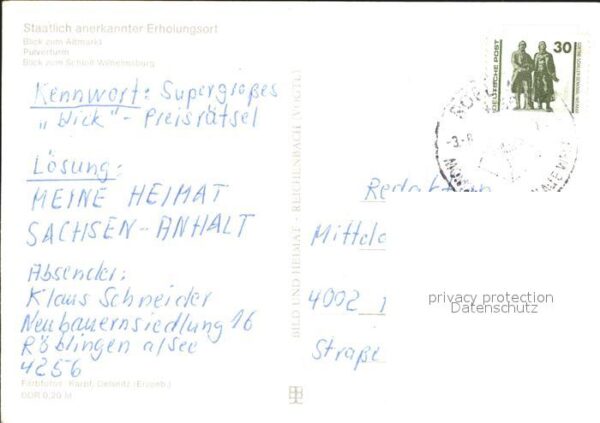 Staatlich anerkannter Erholungsort
Blick zum Altmarkt
Pulverturm
Blick zum Schloß Wilhelmsburg
Kennwort: Supergroßes
„Blick"- Preisrätsel
Lösung:
MEINE HEIMAT
SACHSEN-ANHALT
Absender:
Klaus Schneider
Neubauernsiedlung 16
Röblingen a/See
4256
Farbfotos: Karpf, Oelsnitz (Erzgeb.)
DDR 0,20 M
BILD UND HEIMAT REICHENBACH (VOGTL)
DEUTSCHE POST
30
-3.-8
Mitteld
4002
Straße
privacy protection
Datenschutz